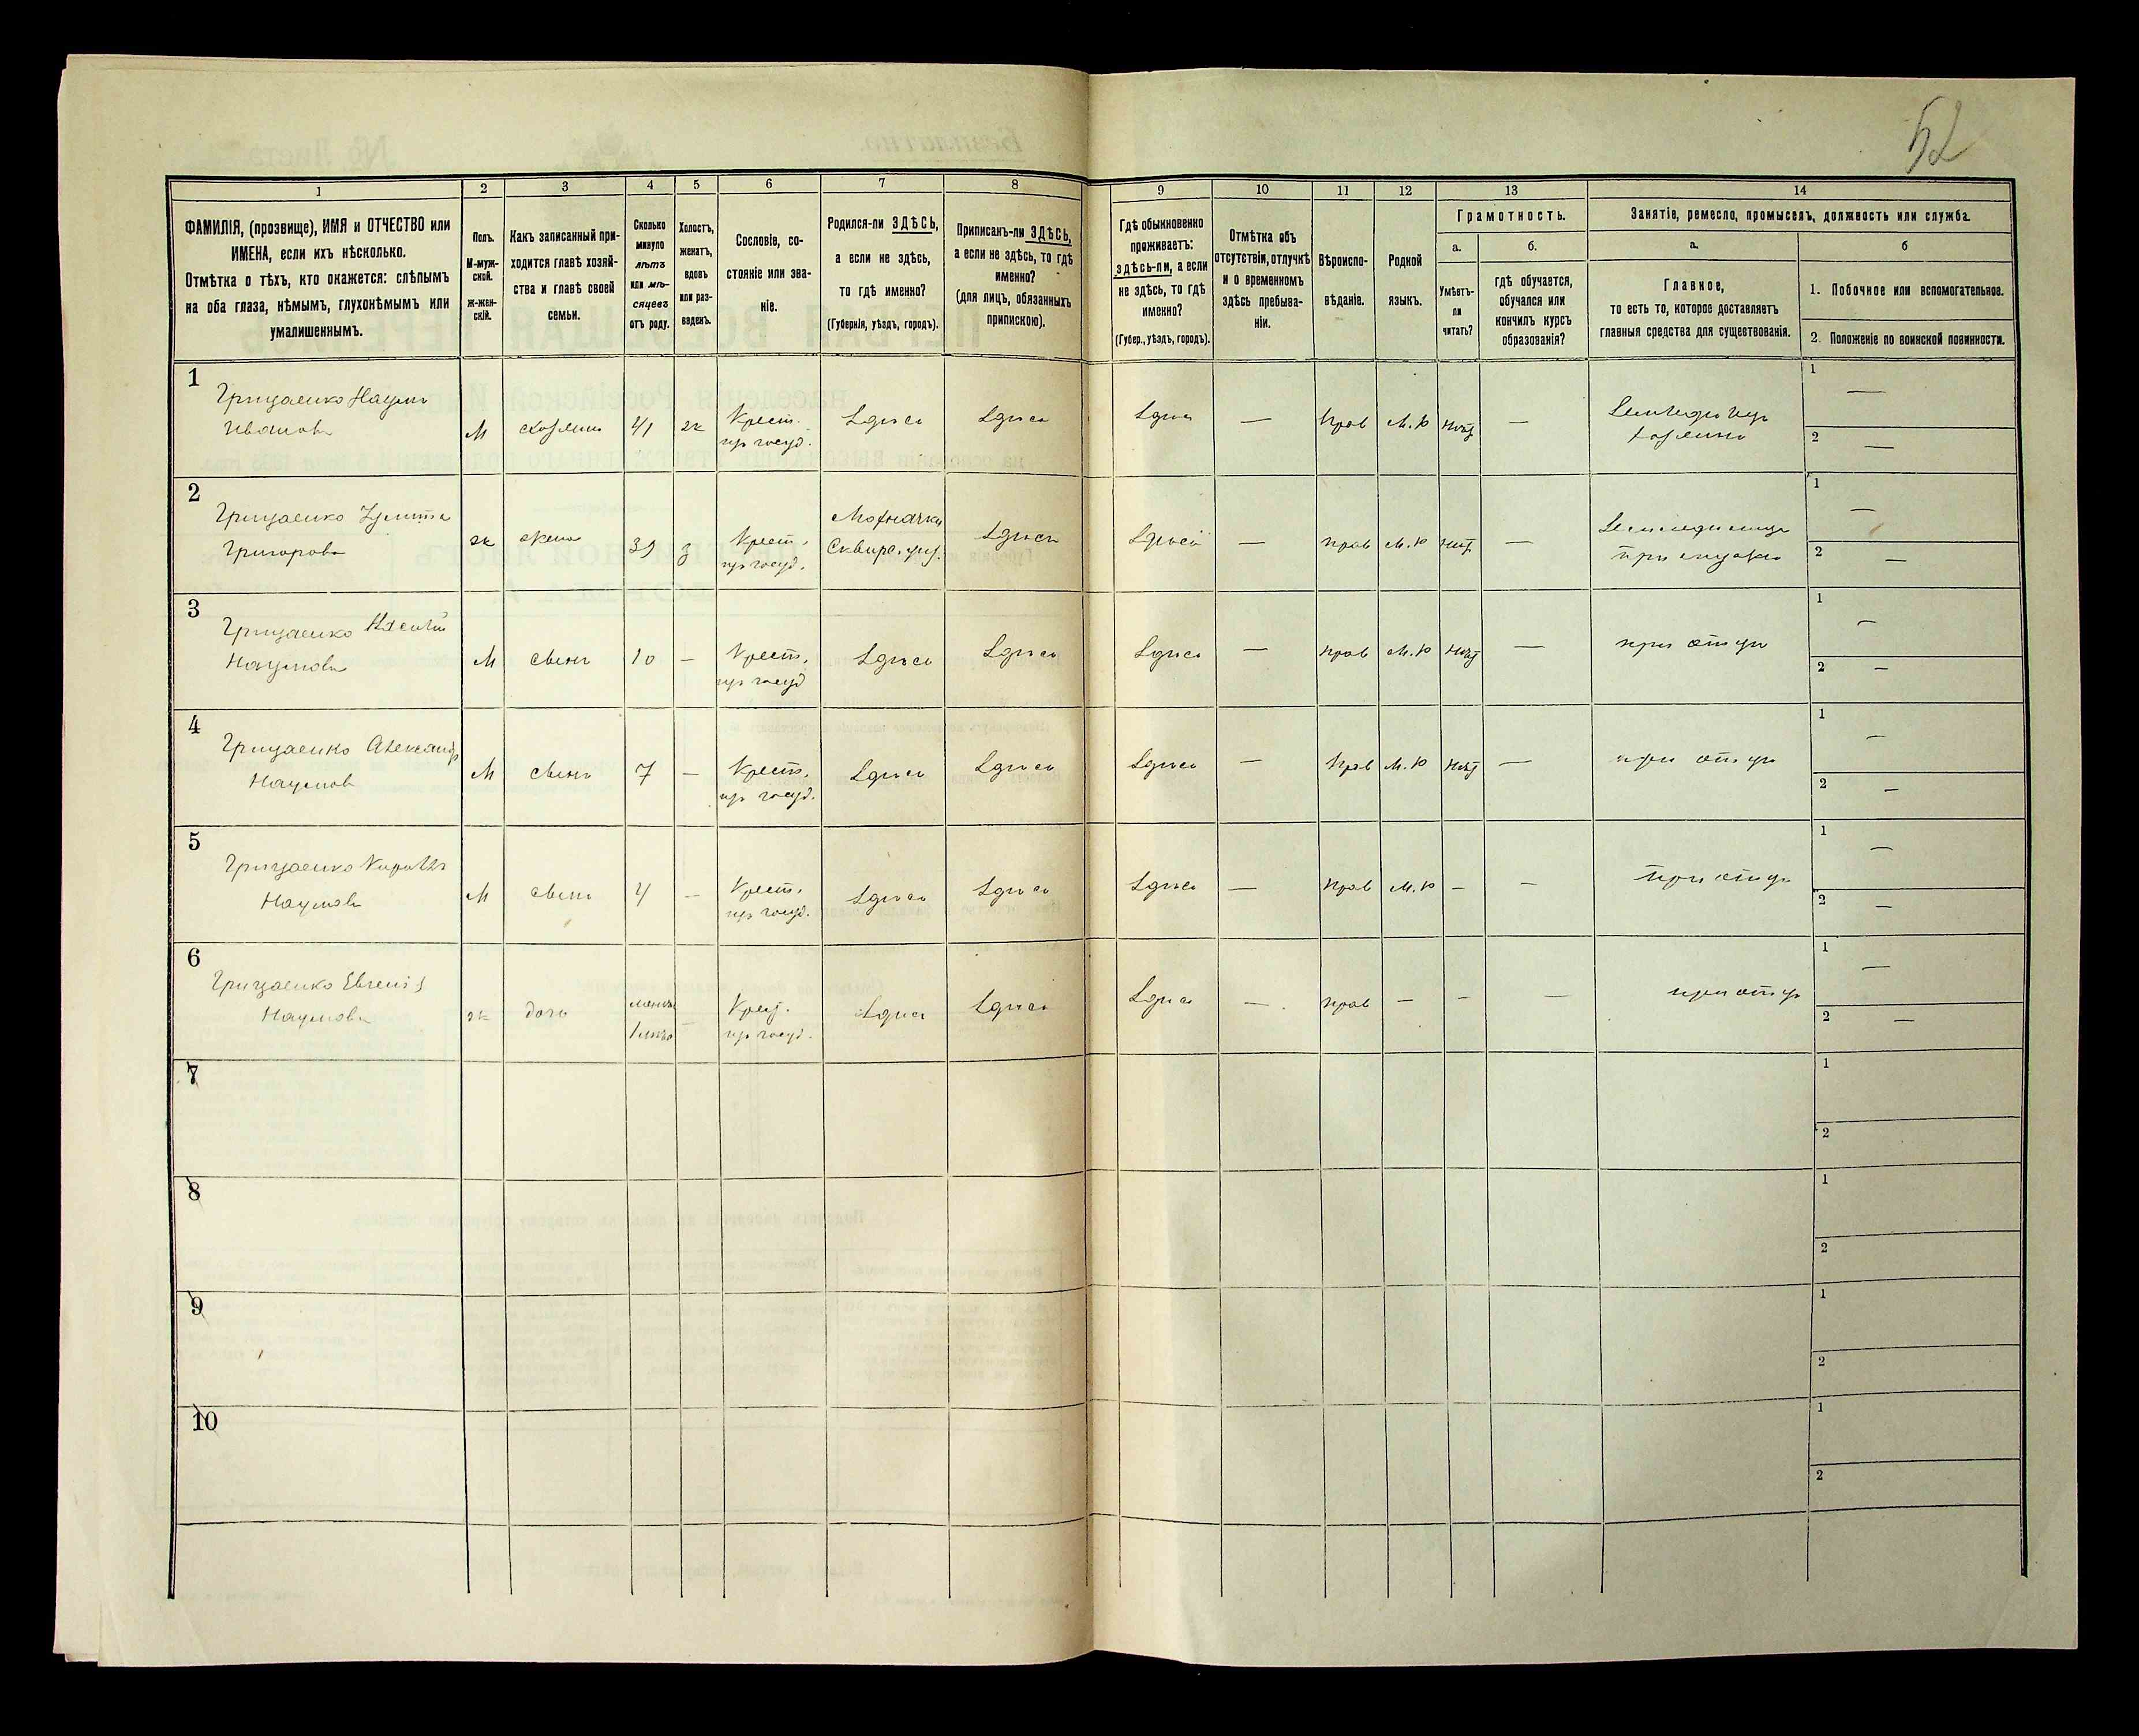 52
1 2 3 4 5 6 7 8 9 10 11 12 13 14
ФАМИЛІЯ, (прозвище), ИМЯ и ОТЧЕСТВО или
ИМЕНА, если ихъ нѣсколько.
Отмѣтка о тѣхъ, кто окажется: слѣпымъ
на оба глаза, нѣмымъ, глухонѣмымъ или
умалишеннымъ.
Полъ.
М-муж-
ской.
ж-жен-
скій.
Какъ записанный при-
ходится главѣ хозяй-
ства и главѣ своей
семьи.
Сколько
минуло
лѣтъ
или мѣ-
сяцевъ
отъ роду.
Холостъ,
женатъ,
вдовъ
или раз-
веденъ.
Сословіе, со-
стояніе или зва-
ніе.
Родился-ли ЗДѢСЬ,
а если не здѣсь,
то гдѣ именно?
(Губернія, уѣздъ, городъ).
Приписанъ-ли ЗДѢСЬ,
а если не здѣсь, то гдѣ
именно?
(для лицъ, обязанныхъ
припискою).
Гдѣ обыкновенно
проживаетъ:
здѣсь-ли, а если
не здѣсь, то гдѣ
именно?
(Губер., уѣздъ, городъ).
Отмѣтка объ
отсутствіи, отлучкѣ
и о временномъ
здѣсь пребыва-
ніи.
Вѣроиспо-
вѣданіе.
Родной
языкъ.
Грамотность.
а.
Умѣетъ-
ли
читать?
б.
гдѣ обучается,
обучался или
кончилъ курсъ
образованія?
Занятіе, ремесло, промыселъ, должность или служба.
а.
Главное,
то есть то, которое доставляетъ
главныя средства для существованія.
б
1. Побочное или вспомогательное.
2. Положеніе по воинской повинности.
1
Грицаенко Наумъ
Ивановъ
М хозяинъ 41 ж Крест.
изъ госуд.
Здѣсь Здѣсь Здѣсь — прав М.Р нѣт —
хозяинъ
1 —
2 —
2
Грицаенко Улита
Григорова
ж жена 39 з Крест.
изъ госуд.
Сквирс. уѣз.
Здѣсь Здѣсь — прав М.Р нѣт —
при мужѣ
1 —
2 —
3
Грицаенко
Наумовъ
М сынъ 10 — Крест.
изъ госуд
Здѣсь Здѣсь Здѣсь — прав М.Р нѣт —
при отцѣ
1 —
2 —
4
Грицаенко Александр
Наумовъ
М сынъ 7 — Крест.
изъ госуд.
Здѣсь Здѣсь Здѣсь — прав М.Р нѣт —
при отцѣ
1 —
2 —
5
Грицаенко Кирилъ
Наумовъ
М сынъ 4 — Крест.
изъ госуд.
Здѣсь Здѣсь Здѣсь — прав М.Р — —
при отцѣ
1 —
2 —
6
Грицаенко Евгенія
Наумова
ж дочь
— Крест.
изъ госуд.
Здѣсь Здѣсь Здѣсь — прав — — —
при отцѣ
1 —
2 —
7
1
2
8
1
2
9
1
2
10
1
2